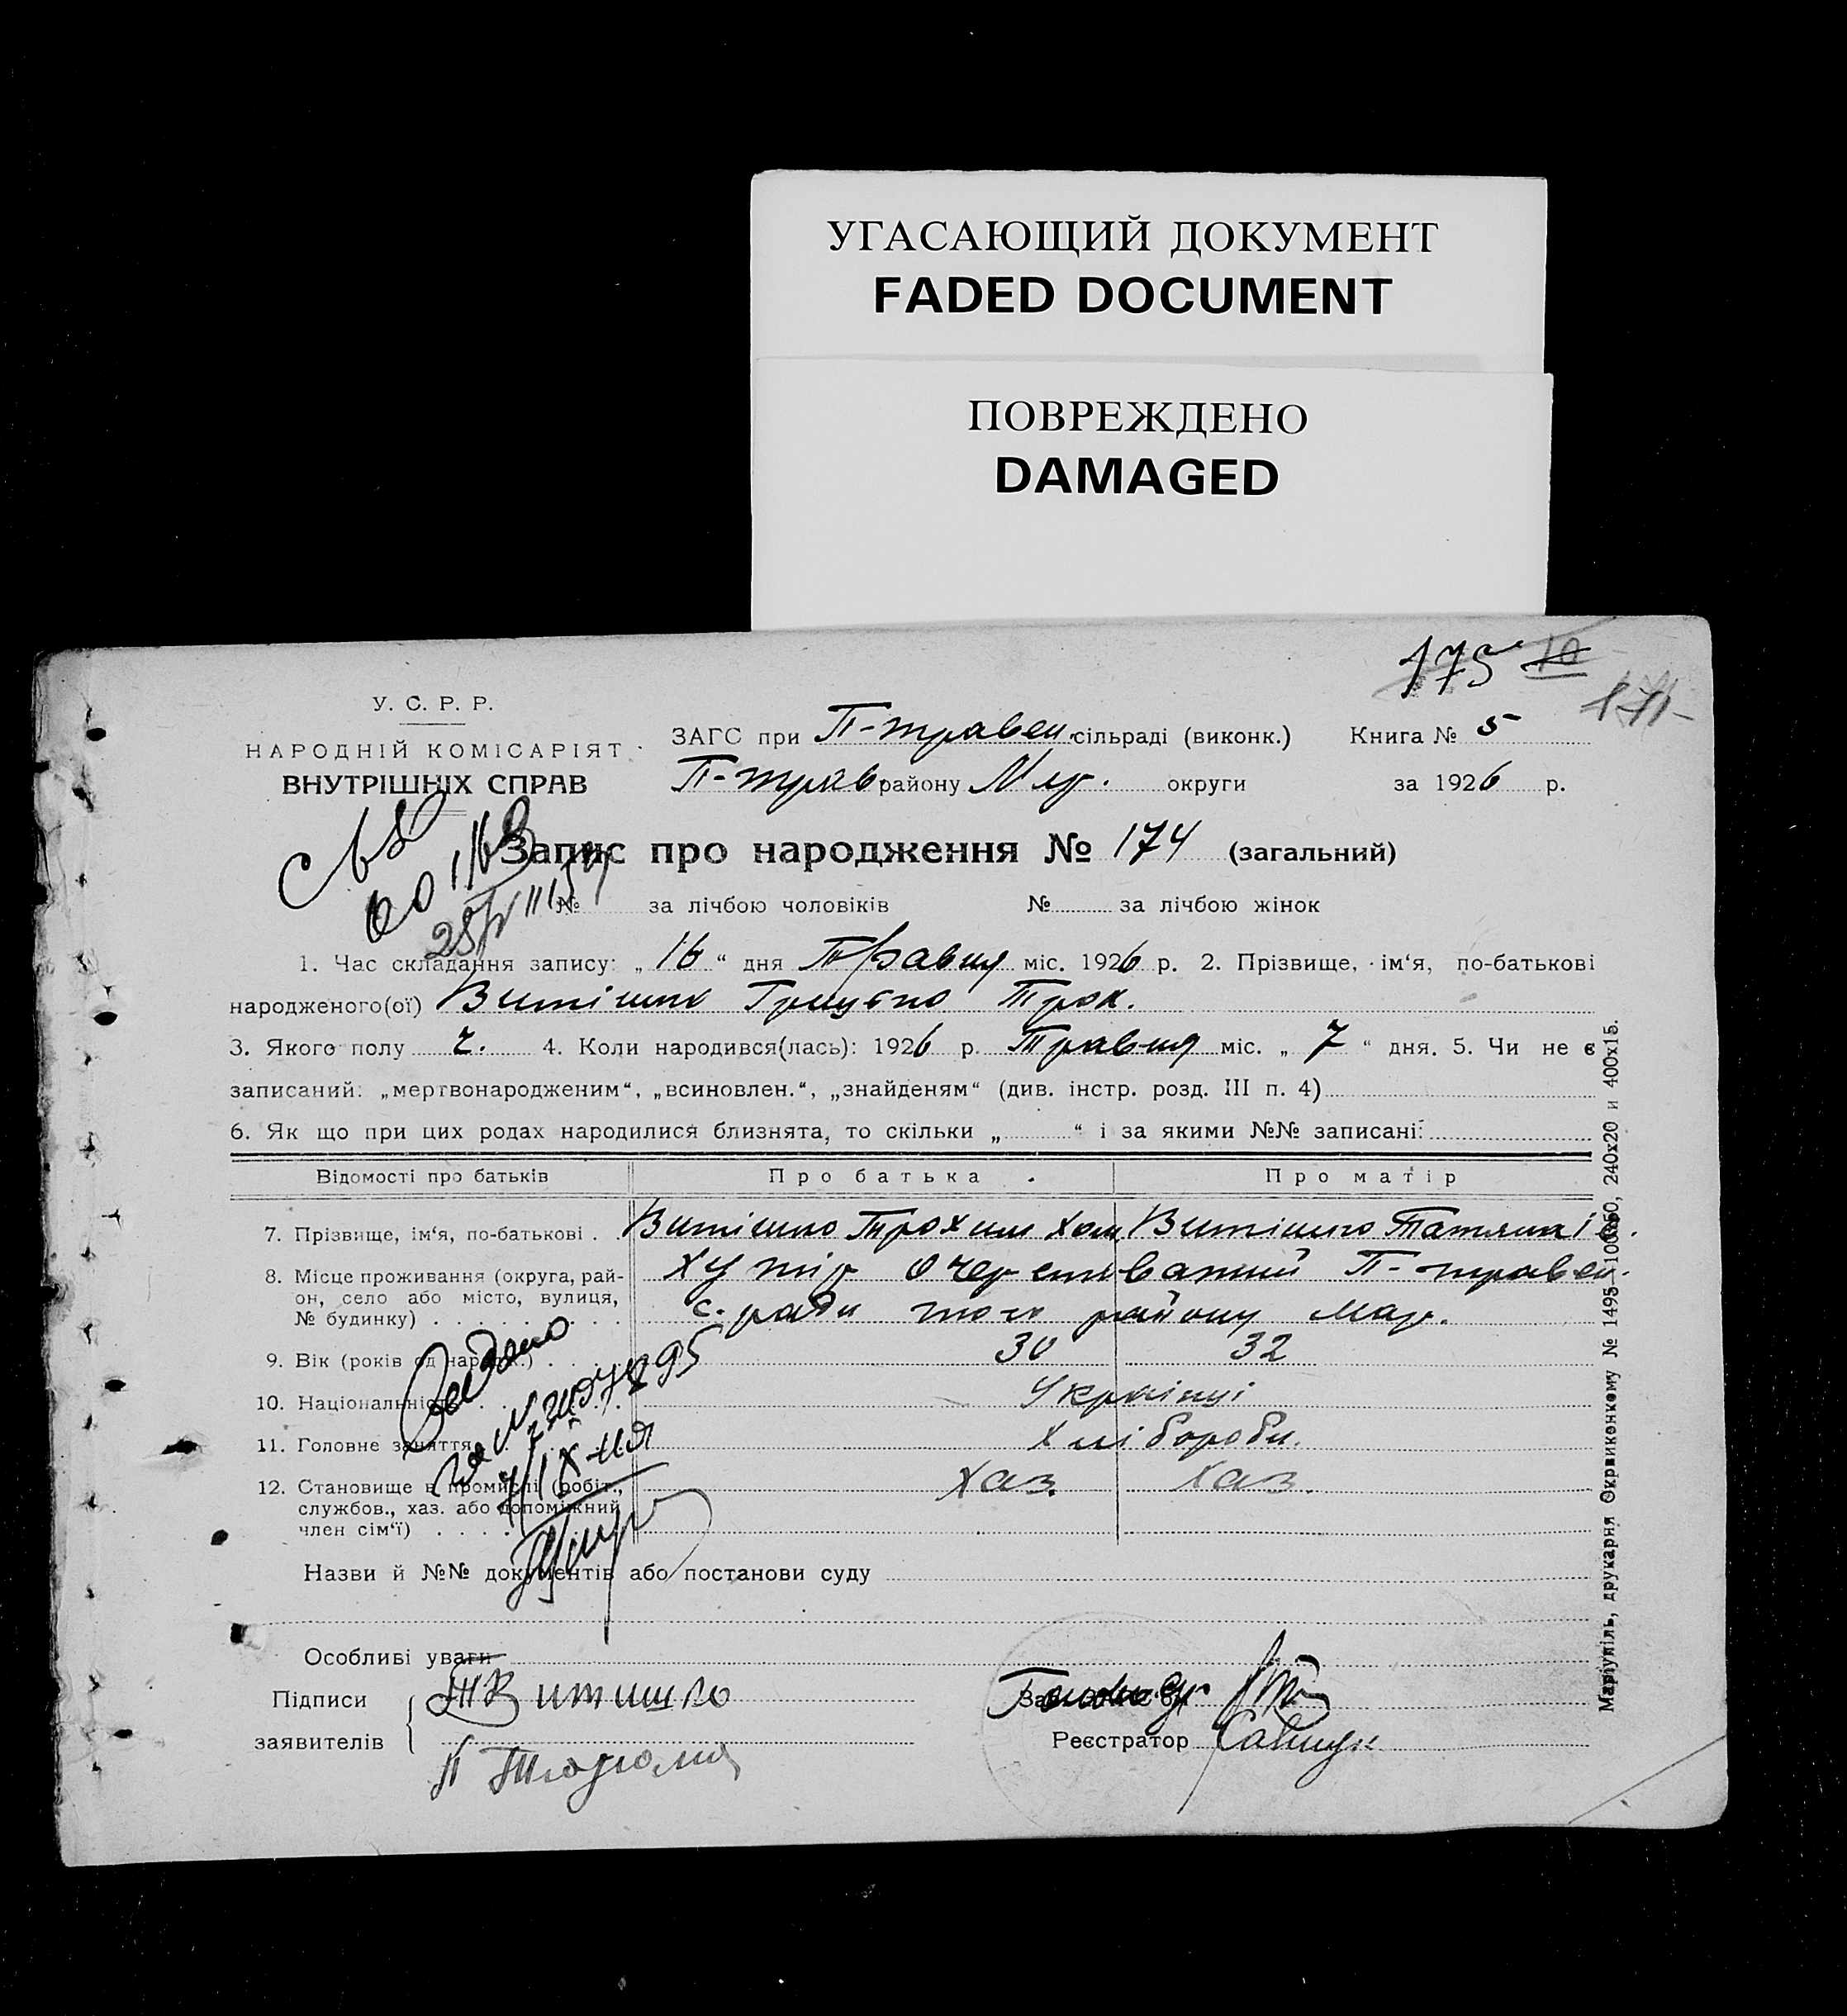 УГАСАЮЩИЙ ДОКУМЕНТ
FADED DOCUMENT
ПОВРЕЖДЕНО
DAMAGED
175 10
171
У. С. Р. Р.
НАРОДНІЙ КОМІСАРІЯТ
ВНУТРІШНІХ СПРАВ
ЗАГС при П-травен. сільраді (виконк.) Книга № 5
П-трав району М округи за 1926 р.
Запис про народження № 174 (загальний)
№ за лічбою чоловіків № за лічбою жінок
1. Час складання запису: „16“ дня Травня міс. 1926 р. 2. Прізвище, ім‘я, по-батькові
народженого(ої) Витішко Грицько Трох.
3. Якого полу ч. 4. Коли народився(лась): 1926 р. Травня міс. „7“ дня. 5. Чи не є
записаний: „мертвонародженим“, „всиновлен.“, „знайденям“ (див. інстр. розд. III п. 4)
6. Як що при цих родах народилися близнята, то скільки „ “ і за якими №№ записані:
Відомості про батьків Про батька Про матір
7. Прізвище, ім‘я, по-батькові . . Витішко Трохим Хом. Витішко Татяна Ів.
8. Місце проживання (округа, рай-
он, село або місто, вулиця,
№ будинку)
Хутір Очеретоватий П-травен.
с. ради того району Мар.
9. Вік (років од народж.) 30 32
10. Національність Українці
11. Головне заняття Хлібороби.
12. Становище в промислі (робіт.,
службов., хаз. або допоміжний
член сім‘ї)
хаз. хаз.
Видано
Назви й №№ документів або постанови суду
Особливі уваги
Підписи
заявителів
Т Витишко
Реєстратор
Маріупіль, друкарня Окрвиконкому № 1495—100х50, 240х20 и 400х15.